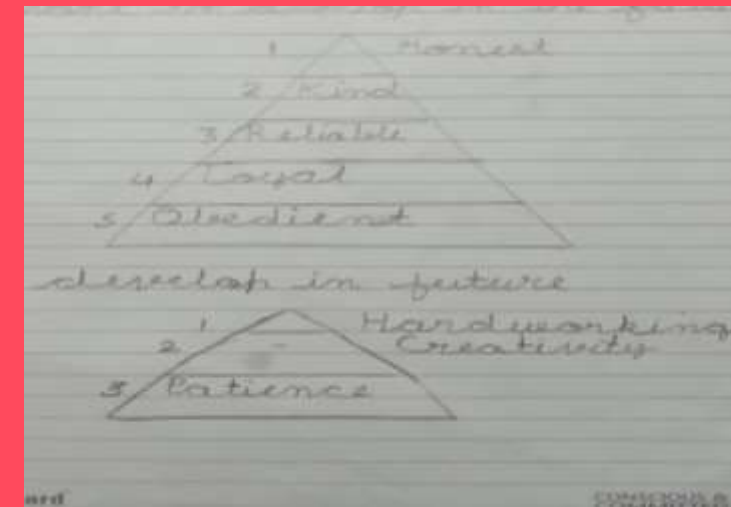 1 Honest
2 Kind
3 Reliable
4 Loyal
5 Obedienet
develop in future
1 Hardworking
2 Creativity
3 Patience
ard CONSCIOUS &
COMMITTED